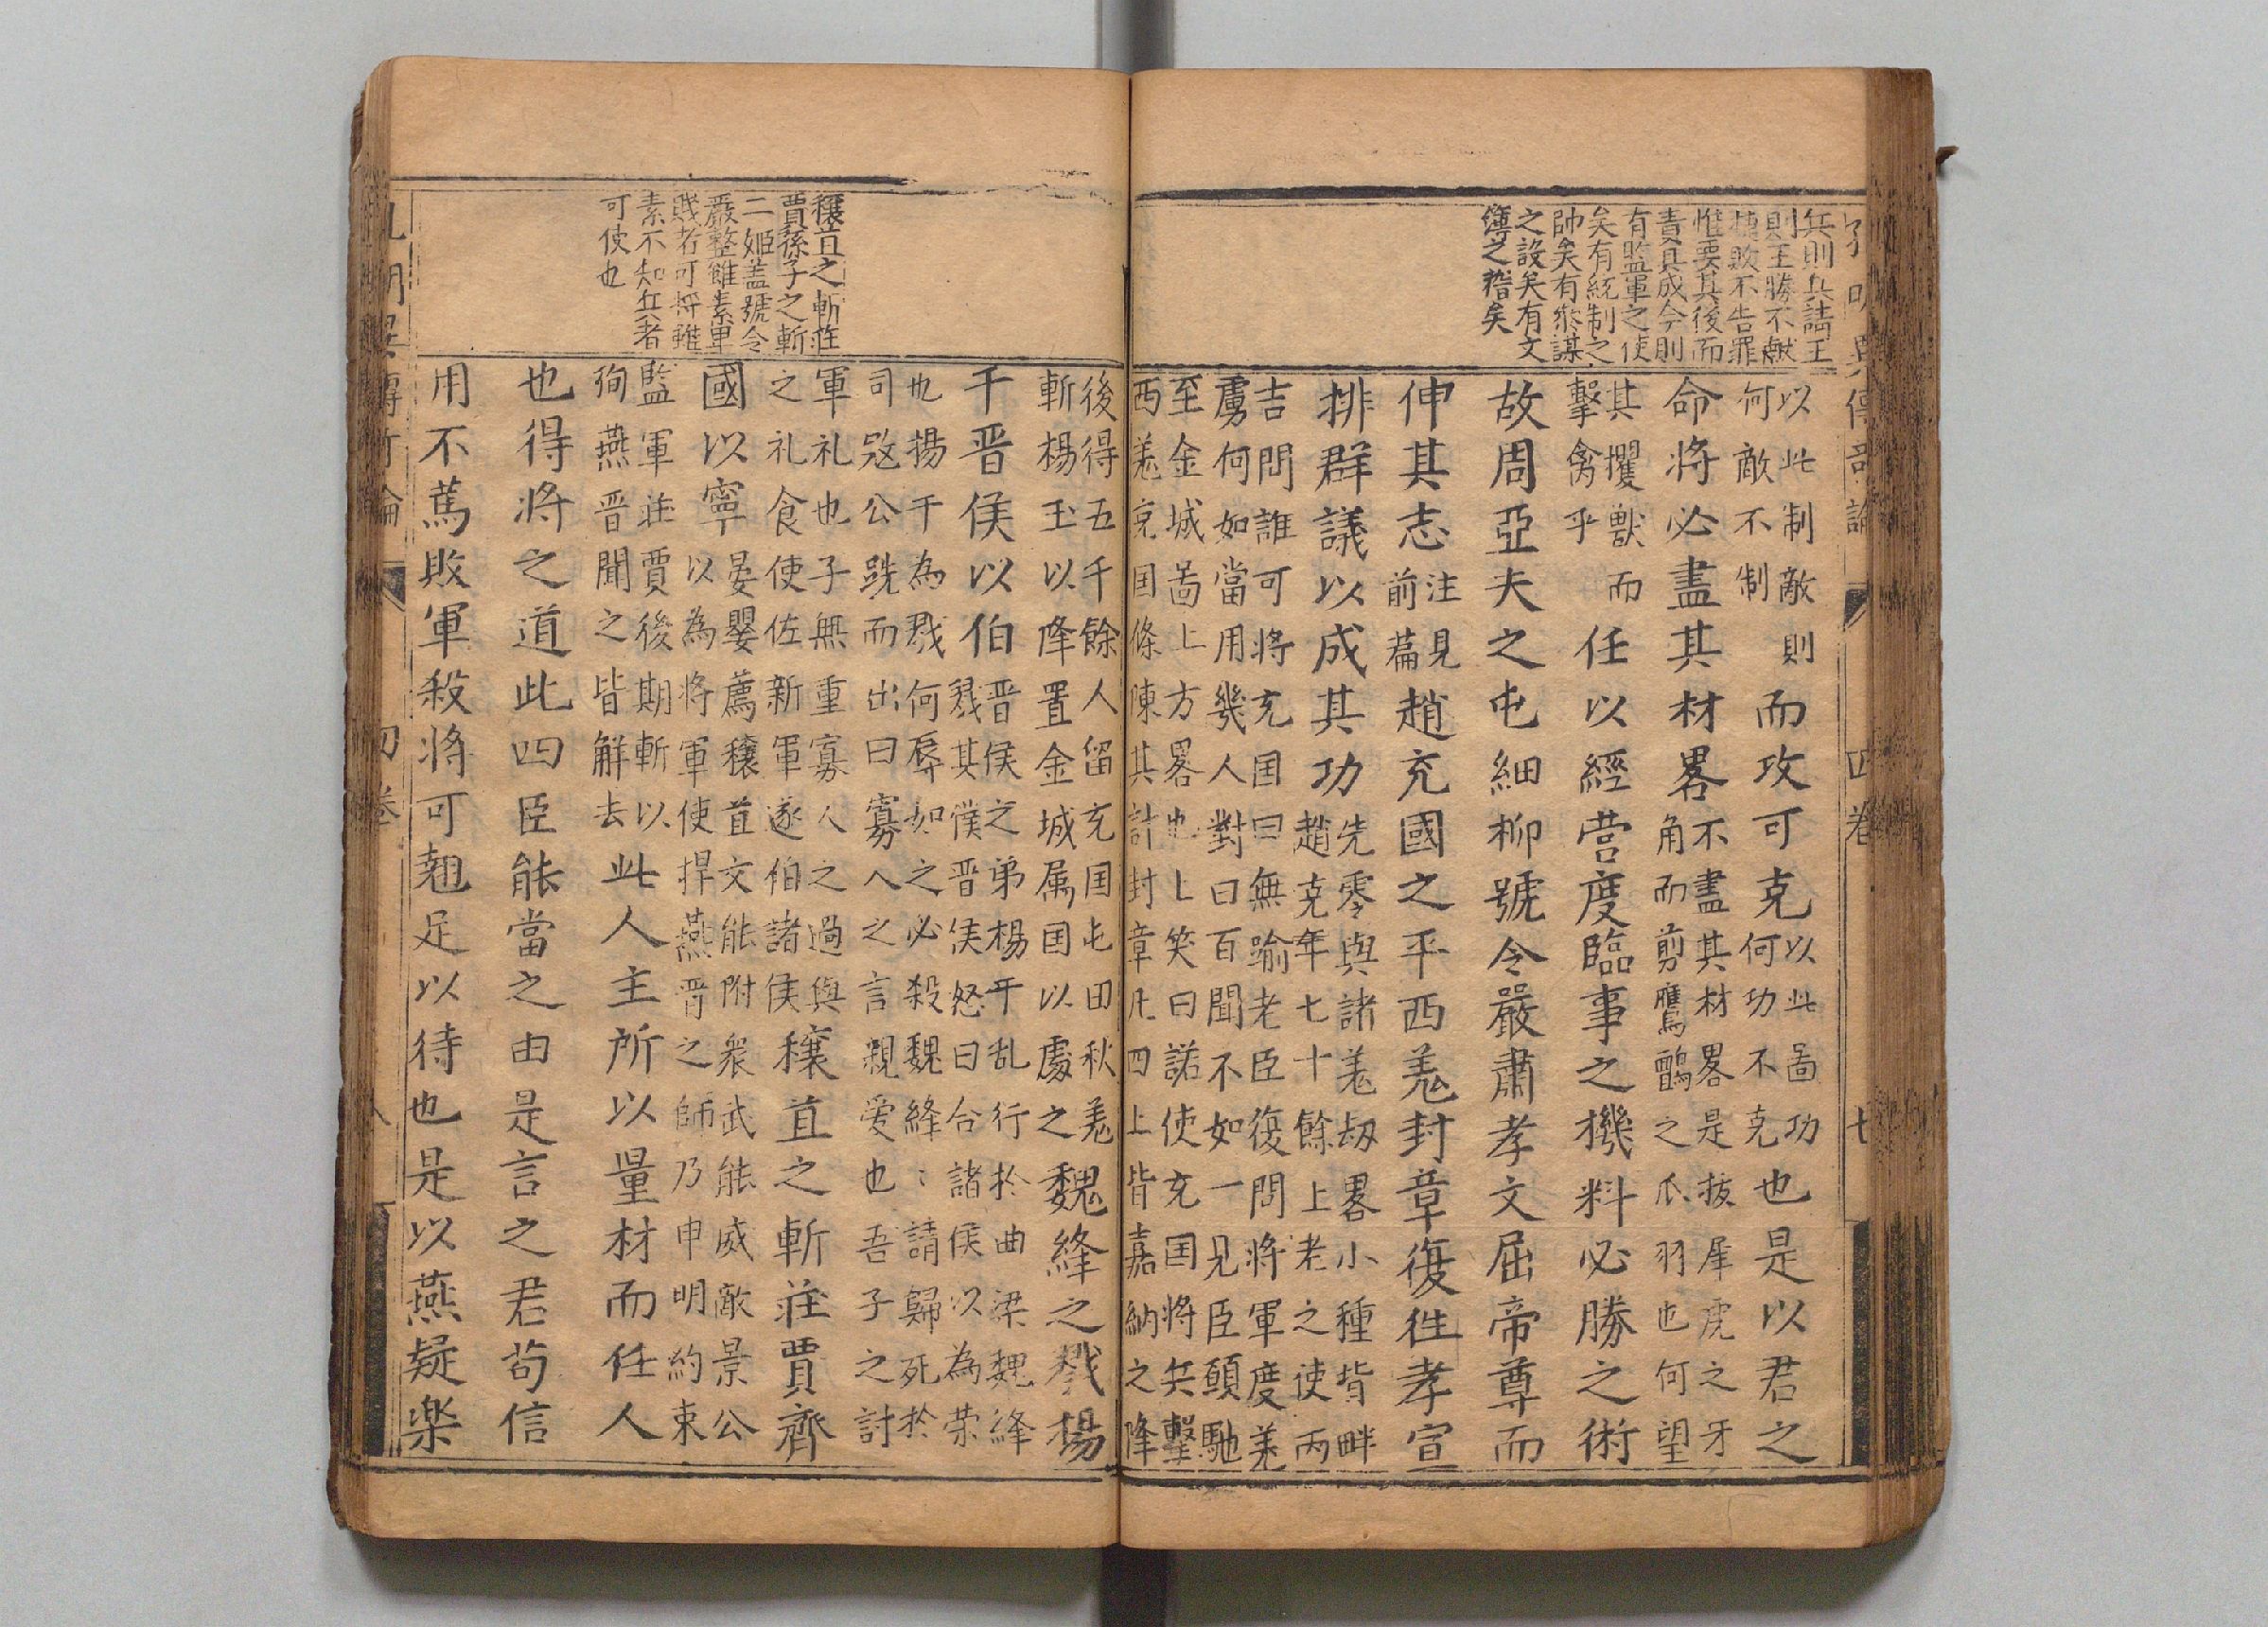 孔明異傳奇論　四卷　七
兵則兵請王
則王勝不献
捷敗不告罪
惟要其後而
責其成今則
有監軍之使
矣有統制之
帥矣有參謀
之設矣有文
簿之稽矣
以此制敵則
何敵不制
而攻可克
以此啚功
何功不克
也是以君之
命將必盡其材畧
不盡其材畧是拔犀虎之牙
角而剪鷹鸇之爪羽也何望
其攫獸而
擊禽乎
任以經营度臨事之機料必勝之術
故周亞夫之屯細柳號令嚴肅孝文屈帝尊而
伸其志
注見
前萹
趙充國之平西羗封章復徃孝宣
排群議以成其功
先零與諸羗刼畧小種背畔
趙充年七十餘上老之使丙
吉問誰可將充囯曰無踰老臣復問將軍度羗
虜何如當用幾人對曰百聞不如一見臣願馳
至金城啚上方畧也上笑曰諾使充囯將兵擊
西羗充囯條陳其計封章凡四上皆嘉納之降
穰苴之斬莊
賈孫子之斬
二姬盖號令
嚴整雖素卑
賎者可將雖
素不知兵者
可使也
後得五千餘人留充囯屯田秋羗
斬楊玉以降置金城属囯以處
之魏絳之戮楊
干晋侯以伯
晋侯之弟楊干乱行於曲梁魏絳
戮其僕晋侯怒曰合諸侯以為荣
也揚干為戮何辱如之必殺魏絳〻請歸死於
司㓂公跣而出曰寡人之言親爱也吾子之討
軍礼也子無重寡人之過與
之礼食使佐新軍遂伯諸侯
穰苴之斬莊賈齊
國以寧
晏嬰薦穰苴文能附衆武能威敵景公
以為將軍使捍燕晋之師乃申明約束
監軍莊賈後期斬以
狥燕晋聞之皆觧去
此人主所以量材而任人
也得將之道此四臣能當之由是言之君苟信
用不蔫敗軍殺將可翹足以待也是以燕疑楽